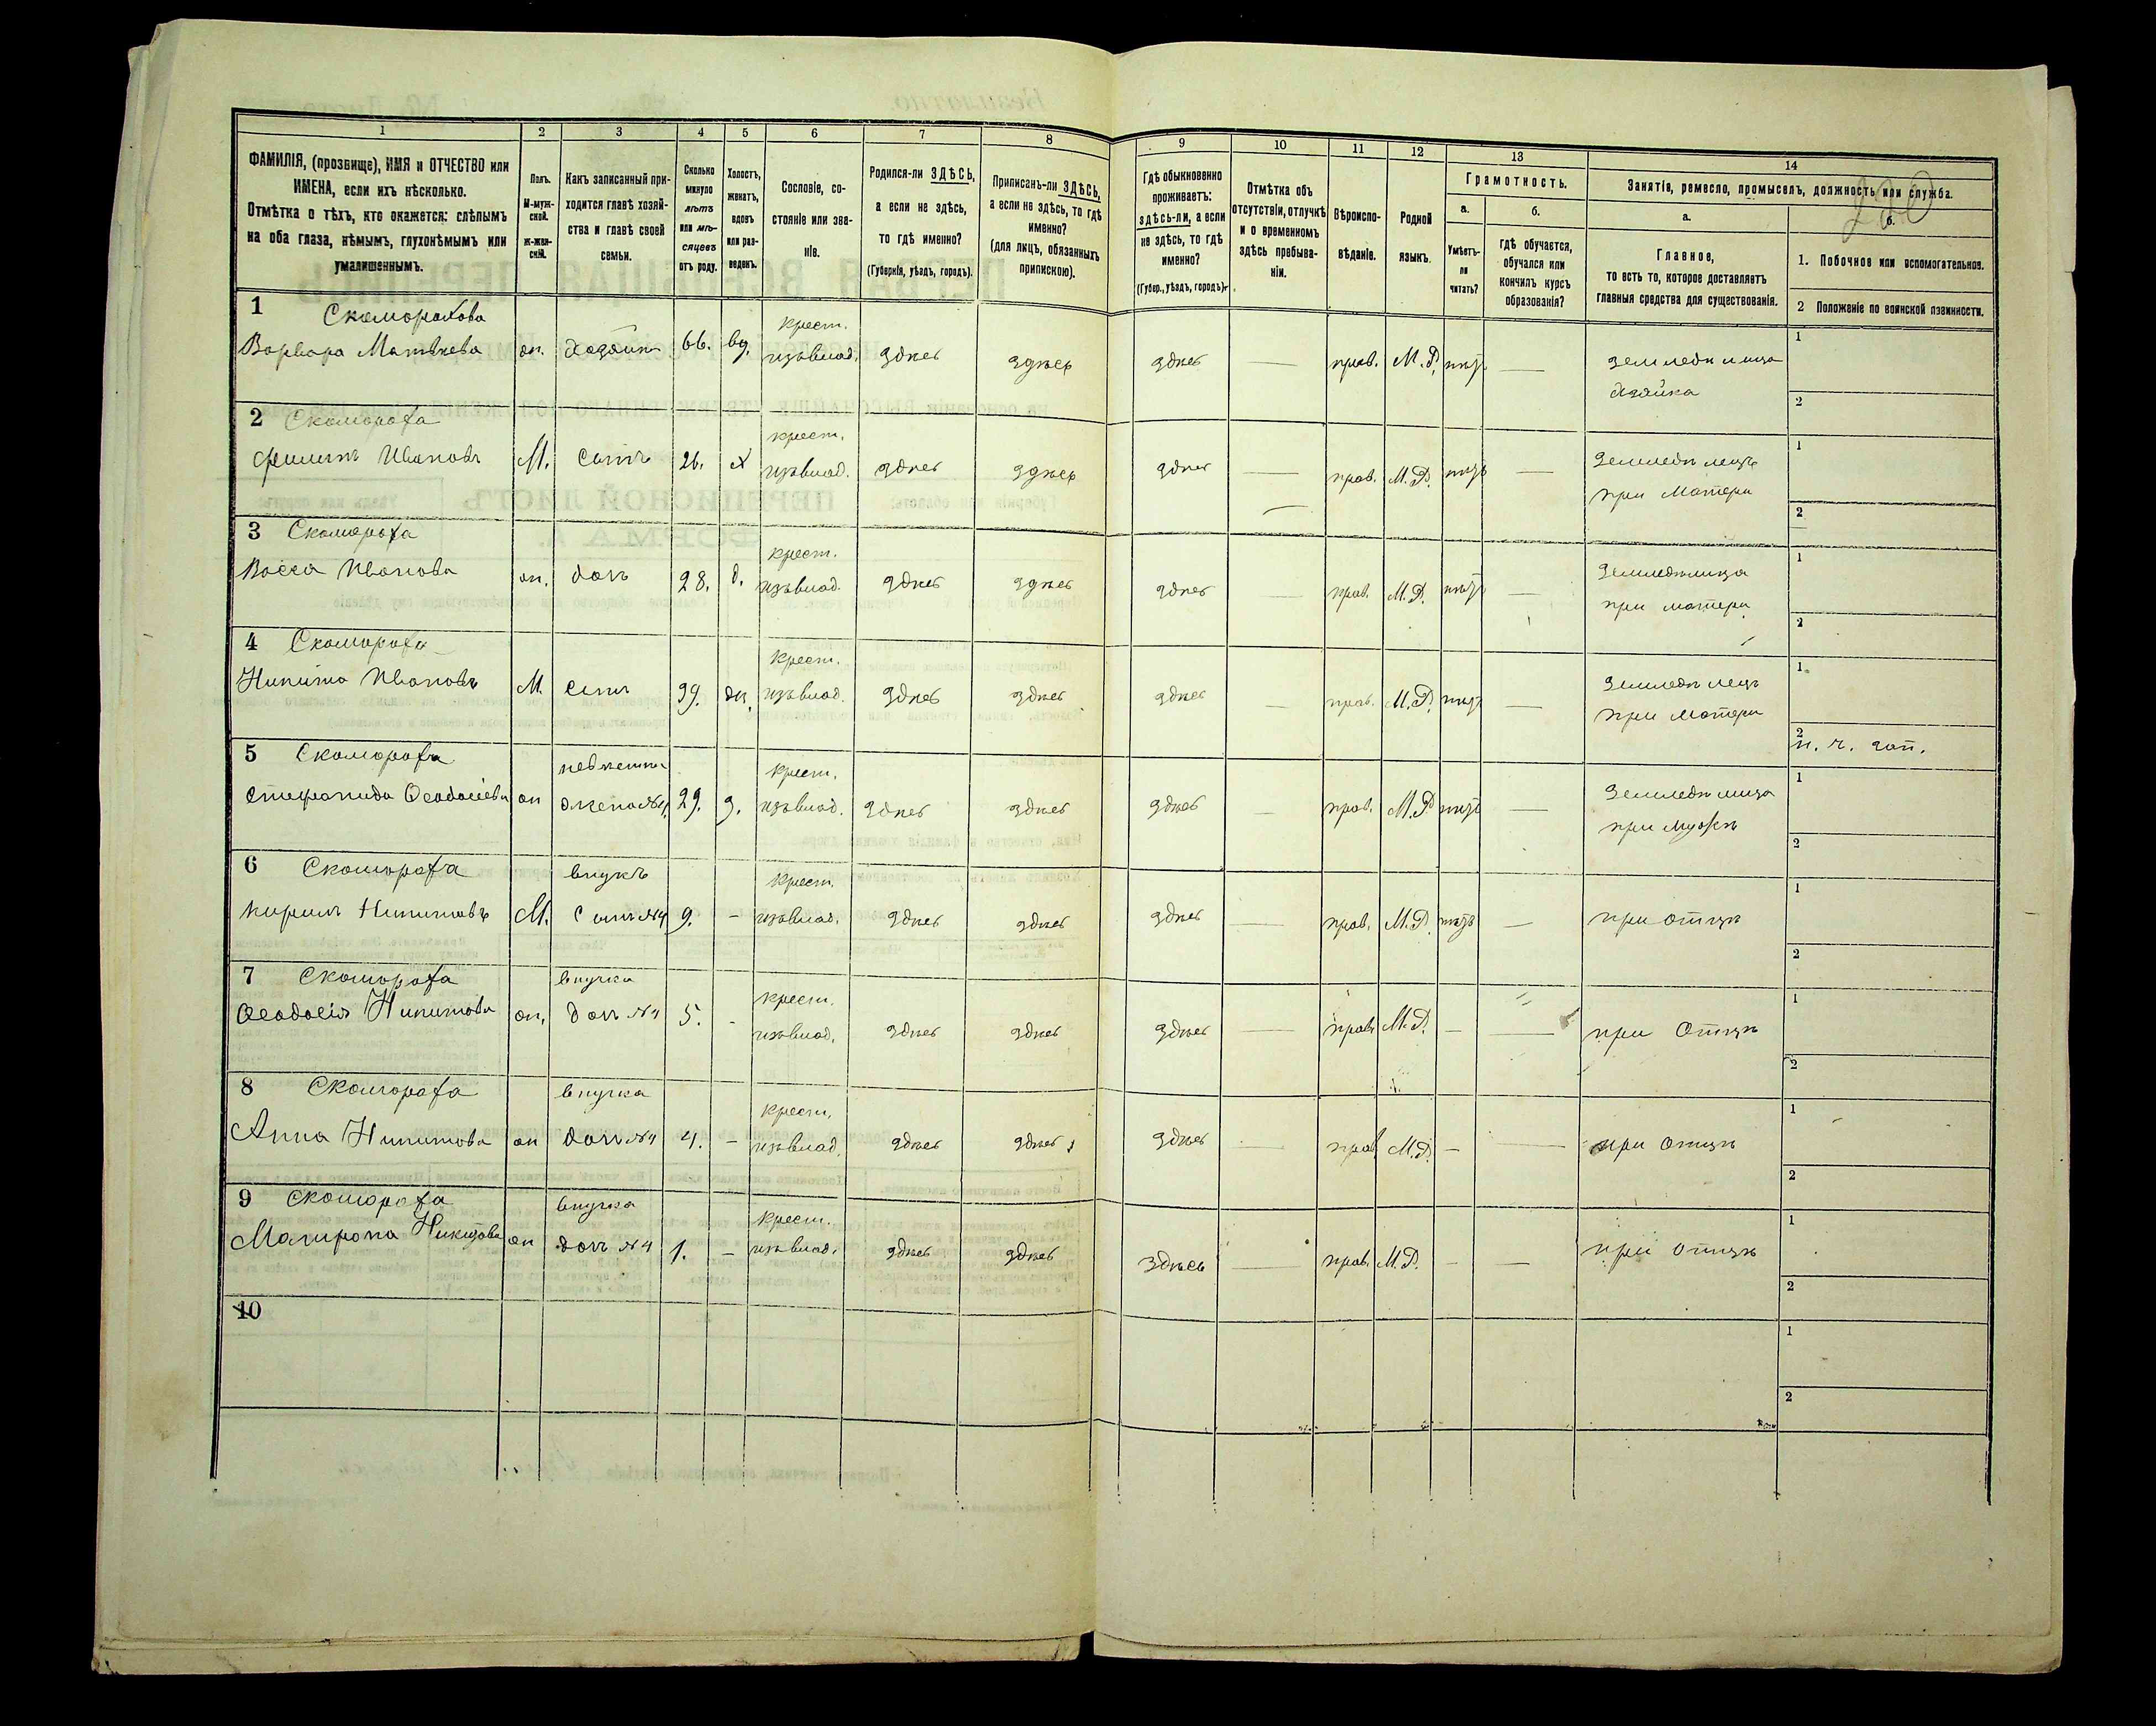 1 2 3 4 5 6 7 8 9 10 11 12 13 14
ФАМИЛІЯ, (прозвище), ИМЯ и ОТЧЕСТВО или
ИМЕНА, если ихъ нѣсколько.
Отмѣтка о тѣхъ, кто окажется: слѣпымъ
на оба глаза, нѣмымъ, глухонѣмымъ или
умалишеннымъ.
Полъ.
М-муж-
ской.
ж-жен-
скій.
Какъ записанный при-
ходится главѣ хозяй-
ства и главѣ своей
семьи.
Сколько
минуло
лѣтъ
или мѣ-
сяцевъ
отъ роду.
Холостъ,
женатъ,
вдовъ
или раз-
веденъ.
Сословіе, со-
стояніе или зва-
ніе.
Родился-ли ЗДѢСЬ,
а если не здѣсь,
то гдѣ именно?
(Губернія, уѣздъ, городъ).
Приписанъ-ли ЗДѢСЬ,
а если не здѣсь, то гдѣ
именно?
(для лицъ, обязанныхъ
припискою).
Гдѣ обыкновенно
проживаетъ:
здѣсь-ли, а если
не здѣсь, то гдѣ
именно?
(Губер., уѣздъ, городъ).
Отмѣтка объ
отсутствіи, отлучкѣ
и о временномъ
здѣсь пребыва-
ніи.
Вѣроиспо-
вѣданіе.
Родной
языкъ.
Грамотность.
а.
Умѣетъ-
ли
читать?
б.
гдѣ обучается,
обучался или
кончилъ курсъ
образованія?
Занятія, ремесло, промыселъ, должность или служба.
а.
Главное,
то есть то, которое доставляетъ
главныя средства для существованія.
б.
1. Побочное или вспомогательное.
2 Положеніе по воинской повинности.
1 Скоморохова крест. 1
Варвара Матвѣева ж. хозяйк 66. вд. изъ влад. здѣсь здѣсь здѣсь — прав. М.Р. нѣтъ — земледѣлица
хозяйка 2
2 Скомороха крест. 1
Филипъ Ивановъ М. сынъ 26. х изъ влад. здѣсь здѣсь здѣсь — прав. М.Р. нѣтъ — земледѣлецъ
при матери 2
3 Скомороха крест. 1
Васса Иванова ж. дочь 28. д. изъ влад. здѣсь здѣсь здѣсь — прав. М.Р. нѣтъ — земледѣлица
при матери 2
4 Скомороха крест. 1
Никита Ивановъ М. сынъ 39. ж. изъ влад. здѣсь здѣсь здѣсь — прав. М.Р. нѣтъ — земледѣлецъ
при матери 2
5 Скомороха невѣстка крест. 1
Степанида Ѳеодосіева ж жена №4 29. з. изъ влад. здѣсь здѣсь здѣсь — прав. М.Р. нѣтъ — земледѣлица
при мужѣ 2
6 Скомороха внукъ крест. 1
Кирилъ Никитовъ М. сынъ №4 9. — изъ влад. здѣсь здѣсь здѣсь — прав. М.Р. нѣтъ — при отцѣ
2
7 Скомороха внучка крест. 1
Ѳеодосія Никитова ж. дочь №4 5. - изъ влад. здѣсь здѣсь здѣсь — прав М.Р. — — при отцѣ
2
8 Скомороха внучка крест. 1
Анна Никитова ж дочь №4 4. — изъ влад. здѣсь здѣсь здѣсь — прав М.Р. — — при отцѣ
2
9 Скомороха внучка крест. 1
Матрона Никитова ж дочь №4 1. — изъ влад. здѣсь здѣсь здѣсь — прав. М.Р. — — при отцѣ
2
10 1
2